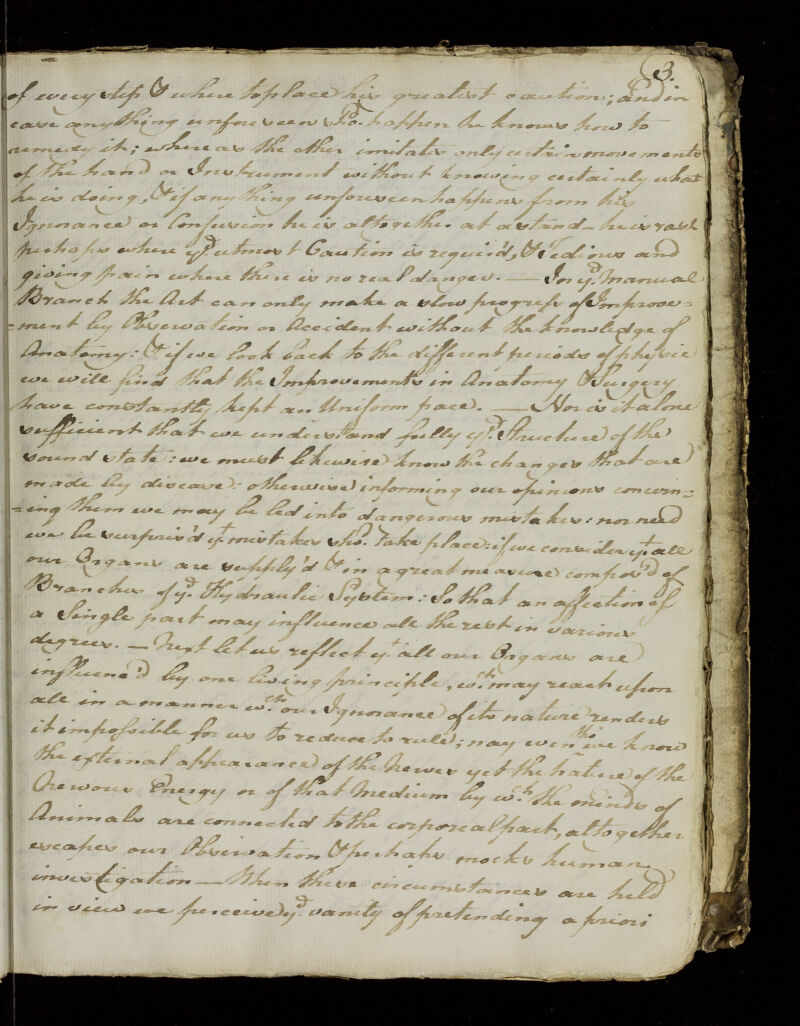 3.
of every step & where to place his greatest caution; and in
case any thing unforeseen sho.d happen he knows how to
remedy it; whereas the other imitates only certain movements
of the hand or Instrument without knowing certainly what
he is doing, & if any thing unforeseen happens from his
Ignorance or Confusion he is altogether at a stand — he is rash
perhaps where ye utmost Caution is requir'd, & Tedious and
giving pain where there is no real danger. — In ye manual
Branch the Art can only make a slow progress of Improve-
-ment by Observation or Accident without the knowledge of
Anatomy: & if we look back to the different periods of physic
we will find that the Improvements in Anatomy & Surgery
have constantly kept an Uniform pace. — Nor is it alone
sufficient that we understand fully ye Structure of the
sound state: we must likewise know the changes that are
made by disease: otherwise in forming our opinions concern-
-ing them we may be led into dangerous mistakes: nor need
we be surpris'd yt mistakes sho.d take place: if we consider yt all
our Organs are supply'd & in a great measure compos'd of
Branches of ye Hydraulic System: So that an affection of
a Single part may influence all the rest in various
degrees. — Next let us reflect yt all our Organs are
influenc'd by one living principle, wch may react upon
all in a manner wch our Ignorance of its nature renders
it impossible for us to reduce to rule; nay even tho' we know
the external appearance of the Nerves yet the nature of the
Nervous Energy or of that Medium by wch the minds of
Animals are connected to the corporeal part, altogether
escapes our Observation & perhaps mocks human
investigation — When these circumstances are held
in view we perceive ye vanity of pretending a priori